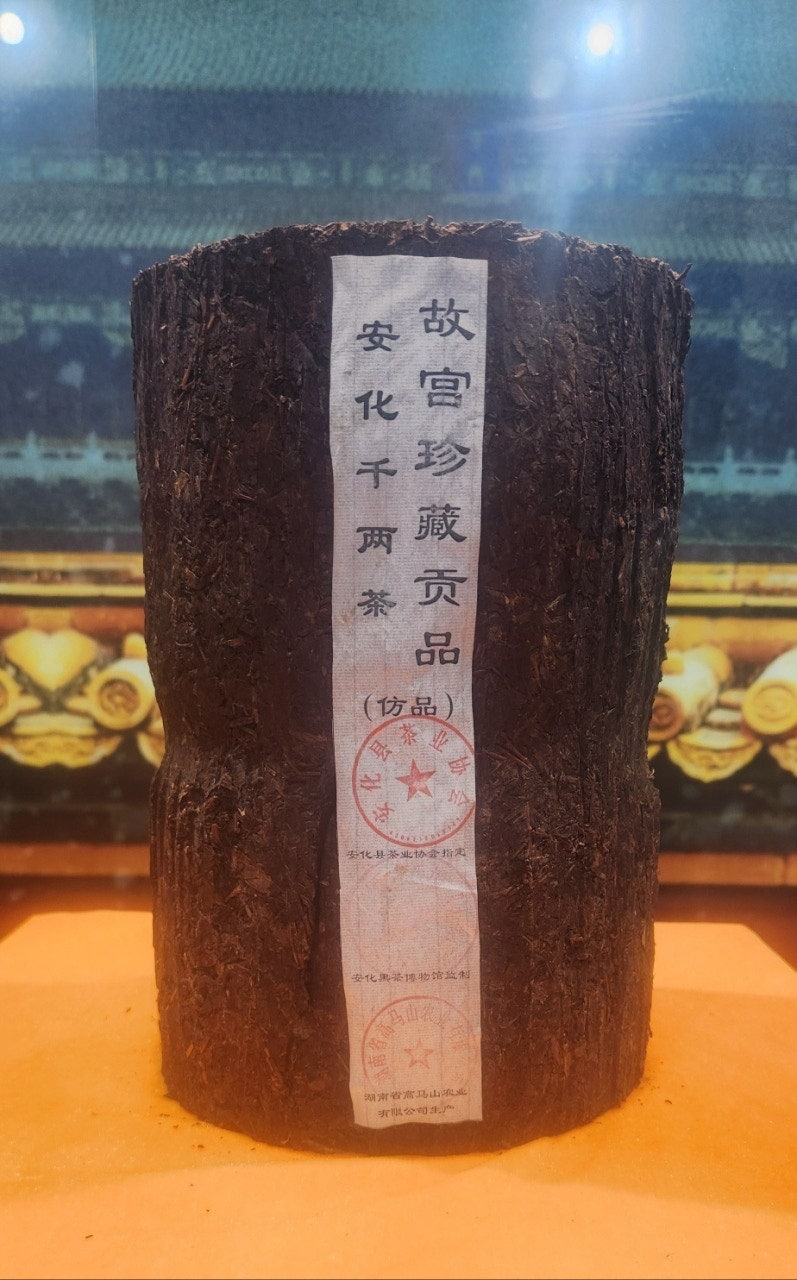 故宫珍藏贡品
安化千两茶
(仿品)
安化县茶业协会
安化县茶业协会指定
安化黑茶博物馆监制
湖南省高马山农业有限
湖南省高马山农业
有限公司生产